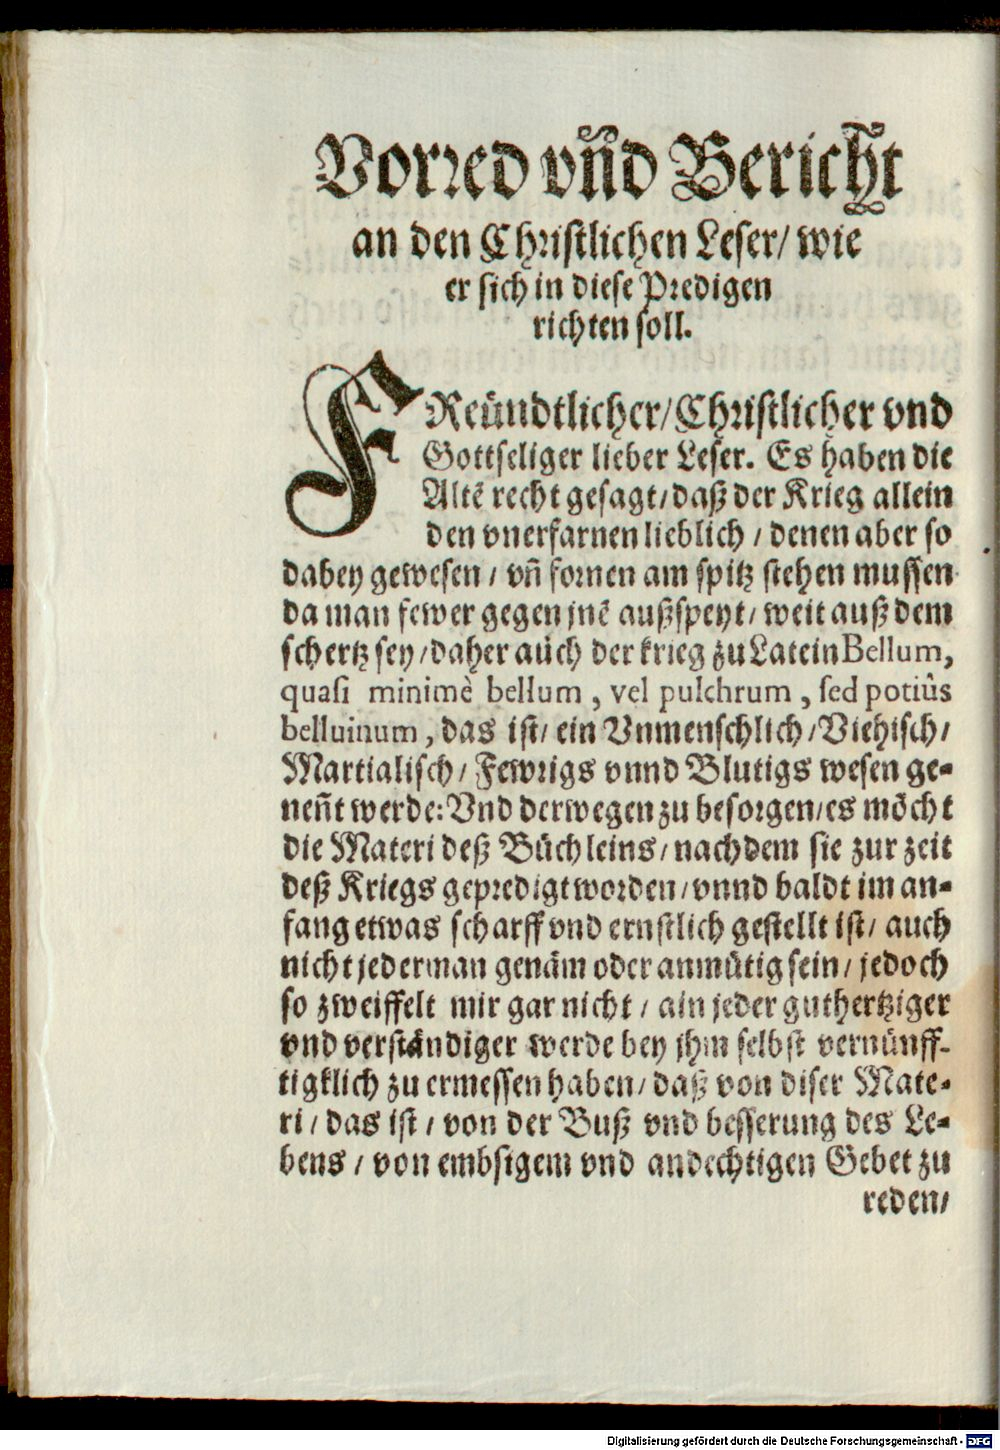 Vorred vñd Bericht
an den Christlichen Leser/ wie
er sich in diese Predigen
richten soll.
FReündtlicher/Christlicher vnd
Gottseliger lieber Leser. Es haben die
Altẽ recht gesagt/daß der Krieg allein
den vnerfarnen lieblich / denen aber so
dabey gewesen / vñ fornen am spitz stehen mussen
da man fewer gegen jnẽ außspeyt/ weit auß dem
schertz sey/daher aüch der krieg zu Latein Bellum,
quasi minimè bellum , vel pulchrum , sed potiûs
belluinum , das ist/ ein Vnmenschlich/Viehisch/
Martialisch/ Fewrigs vnnd Blutigs wesen ge-
neñt werde: Vnd derwegen zu besorgen/es möcht
die Materi deß Büchleins/nachdem sie zur zeit
deß Kriegs gepredigt worden/vnnd baldt im an-
fang etwas scharff vnd ernstlich gestellt ist/ auch
nicht jederman genäm oder anmütig sein/ jedoch
so zweiffelt mir gar nicht / ain jeder guthertziger
vnd verständiger werde bey jhm selbst vernünff-
tigklich zu ermessen haben/daß von diser Mate-
ri/das ist/ von der Buß vnd besserung des Le-
bens / von embsigem vnd andechtigen Gebet zu
reden/
Digitalisierung gefördert durch die Deutsche Forschungsgemeinschaft - DFG